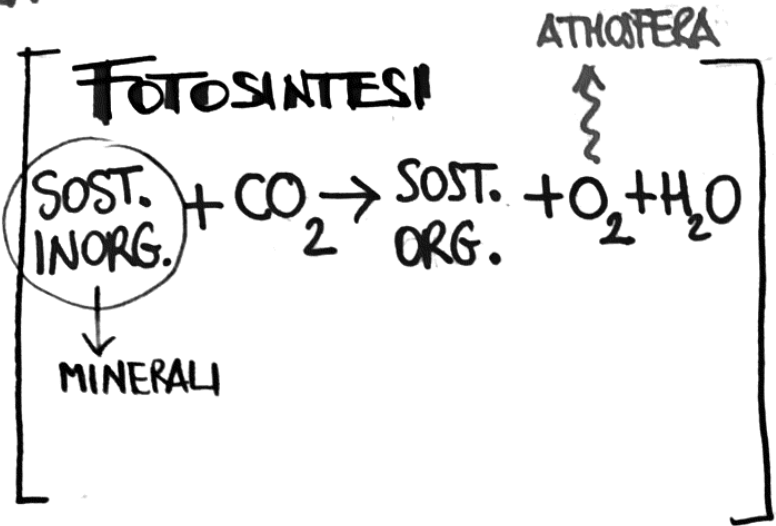 ATMOSFERA
FOTOSINTESI
SOST. INORG. + CO2 → SOST. ORG. + O2 + H2O
MINERALI